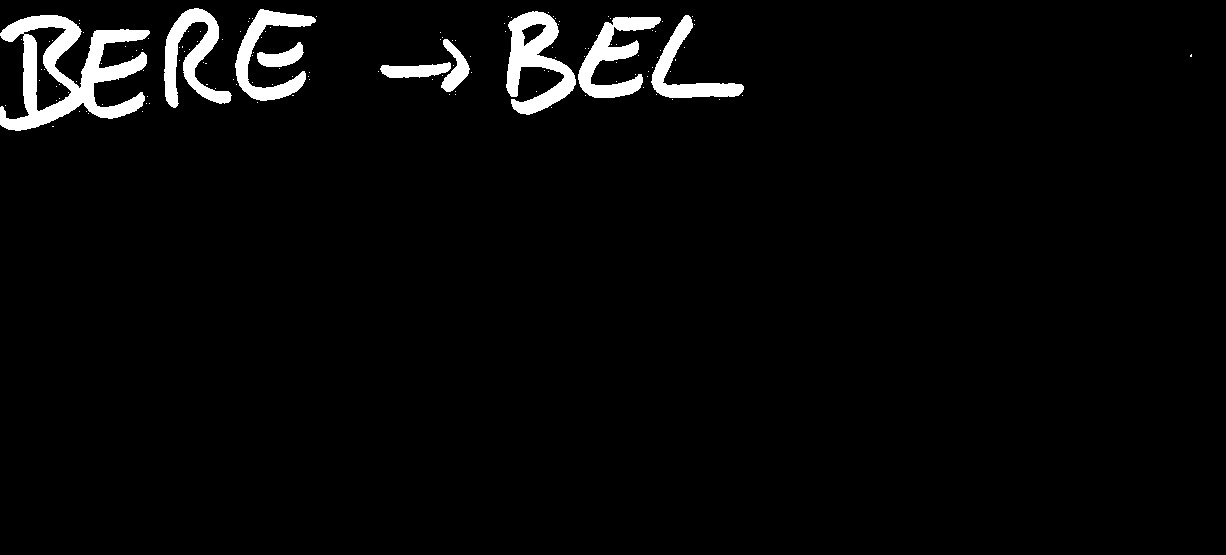 BERE → BEL